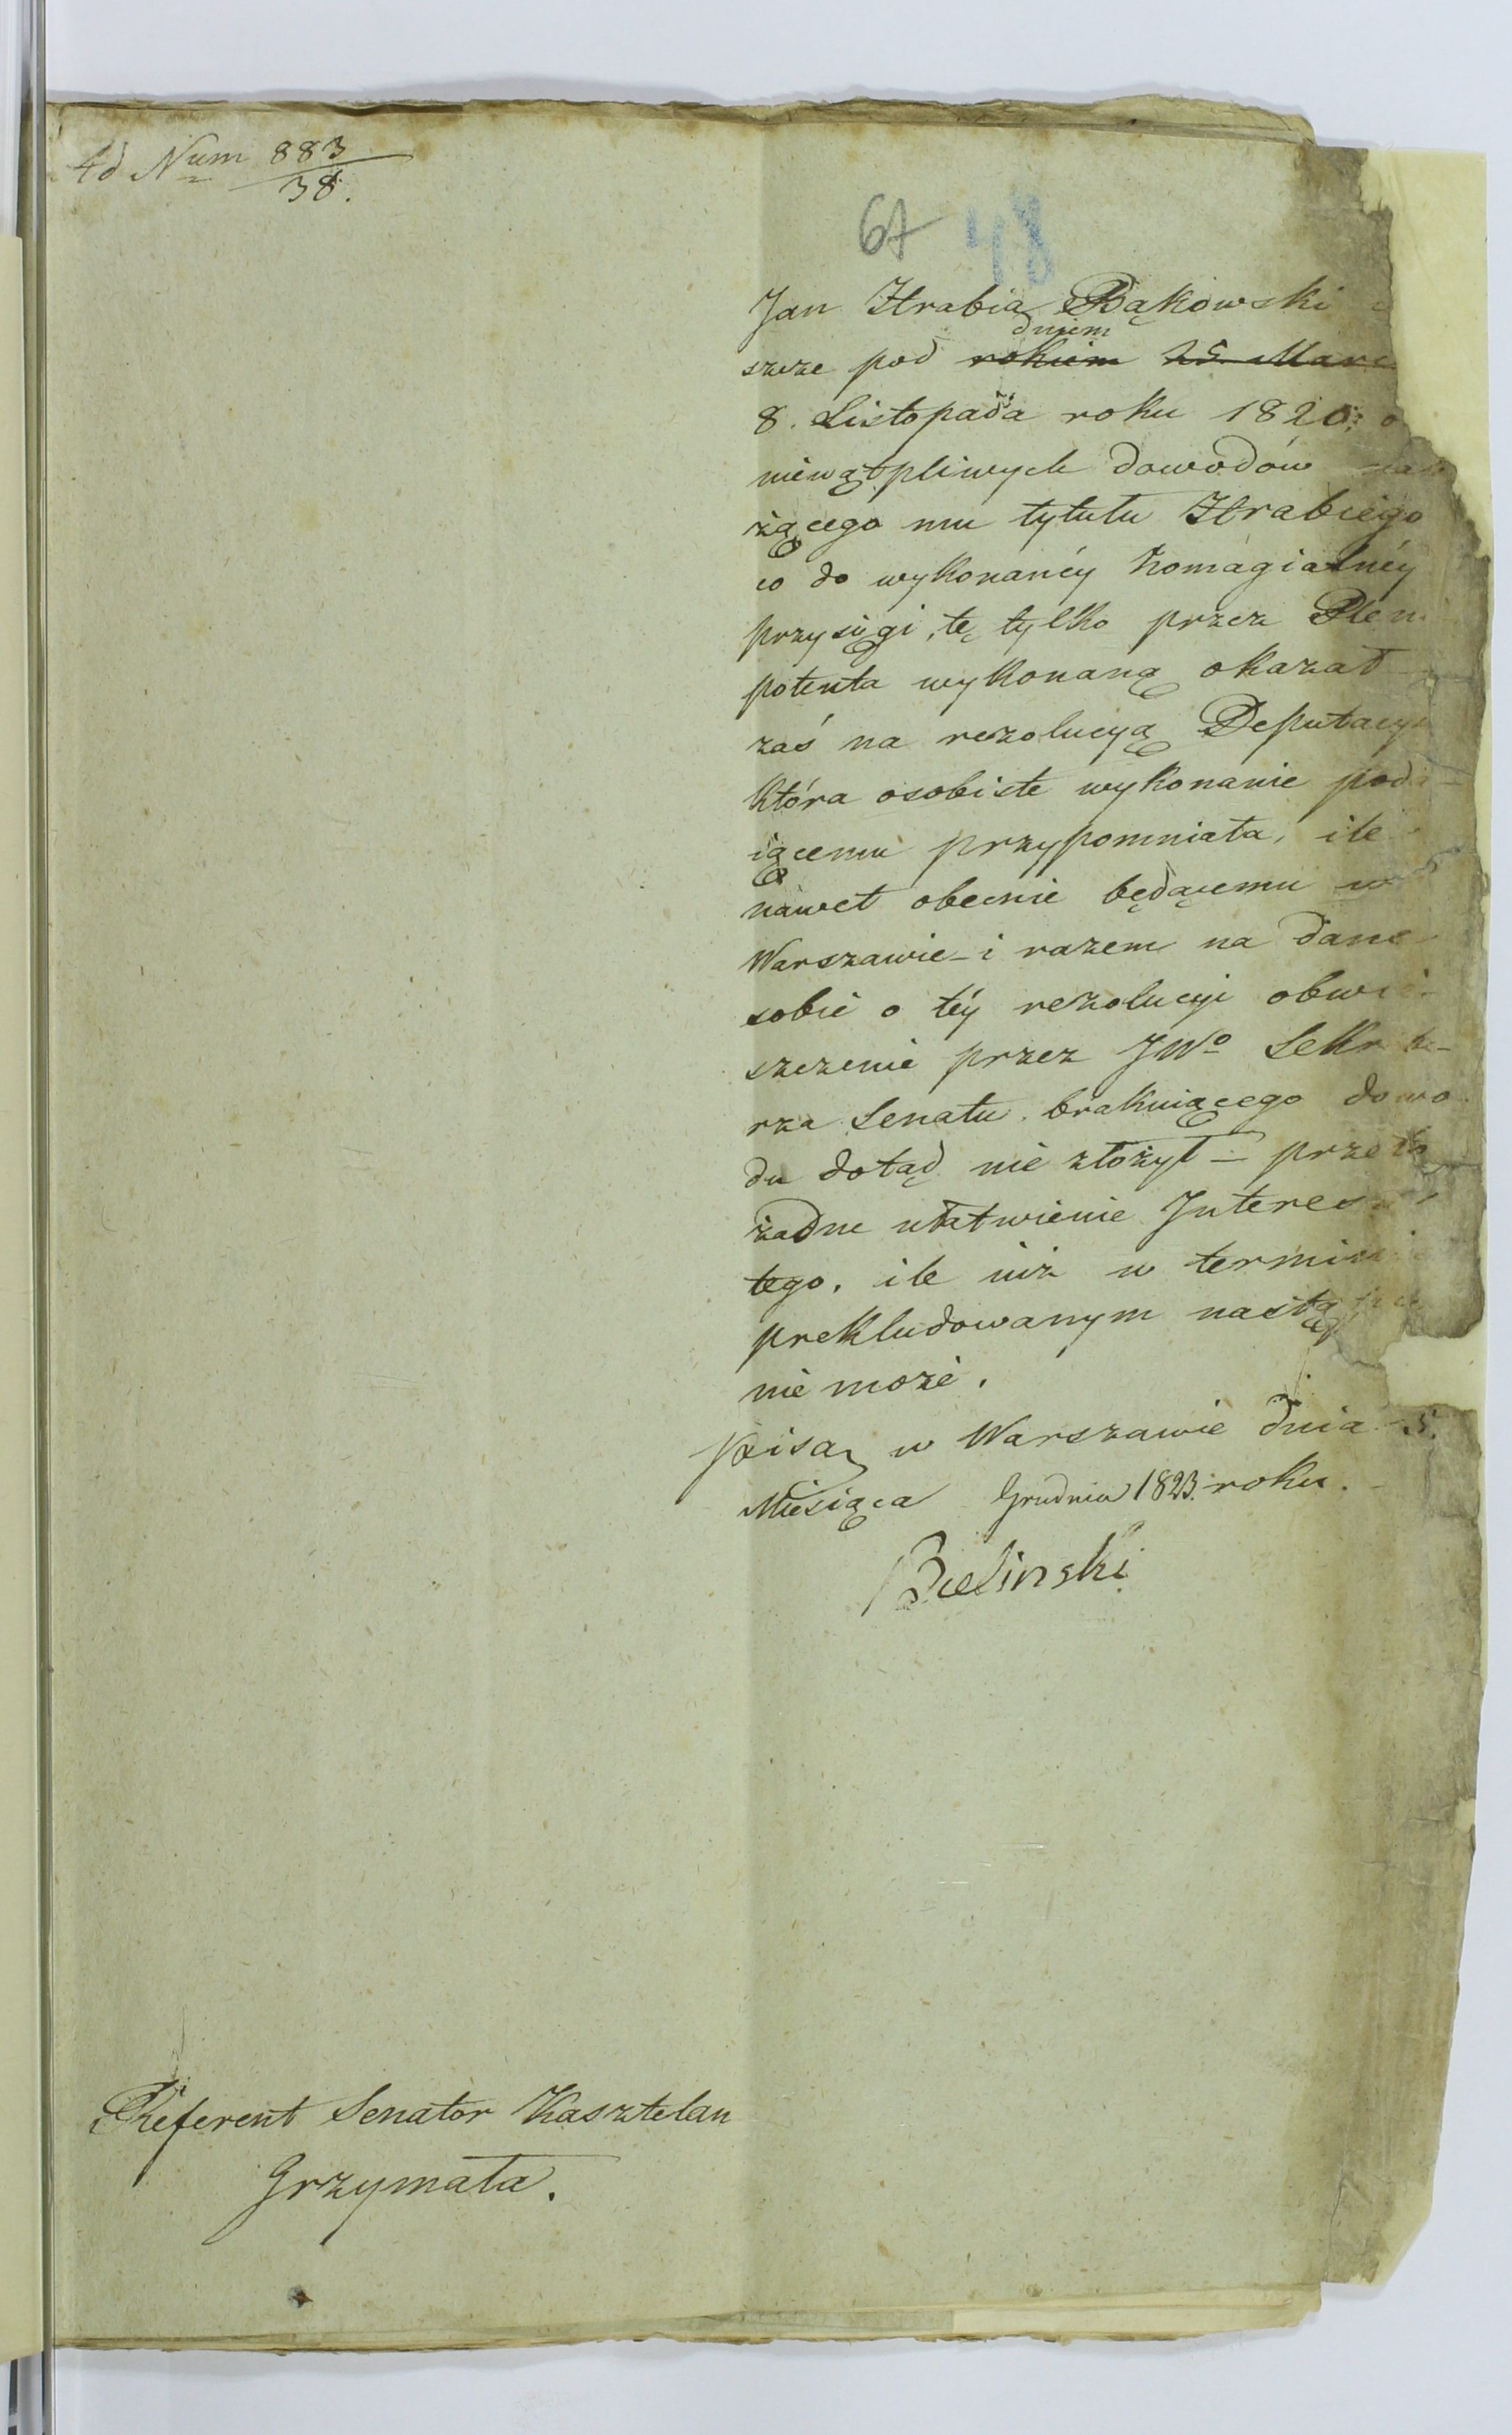 Ad Num 883
38.
67 48
Jan Hrabia Bąkowski
dniem
szcze pod rokiem 25 Marc
8. Listopada roku 1820; o
niewątpliwych dowodów nale
żącego mu tytułu Hrabiego
co do wykonanéy homagialnéy
przysięgi, tę tylko przez Pleni
potenta wykonaną okazał
zaś na rezolucyą Deputacyi
która osobiste wykonanie poda-
iącemu przypomniała, ile
nawet obecnie będącemu w
Warszawie - i razem na dane
sobie o téy rezolucyi obwie-
szczenie przez JWo Sekreta-
rza Senatu, brakuiącego dowo
du dotąd nie złożył - przeto
żadne ułatwienie Interessu
tego, ile iuż w terminie
prekludowanym nastąpić
nie może.
pisan w Warszawie dnia 5.
Miesiąca Grudnia 1823. roku.
Bielinski
Referent Senator Kasztelan
Grzymała.